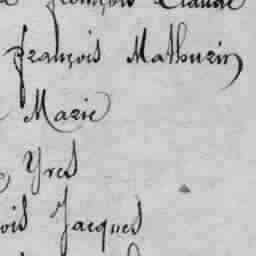 françois Claude
françois Mathurin
Marie
Yves
ois Jacques